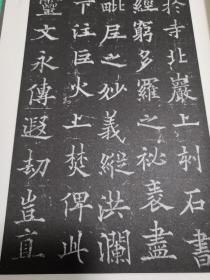 於寺北巖上刻石書
經窮多羅之祕袠盡
毗尼之妙義縱洪瀾
下注巨火上焚俾此
靈文永傳遐劫豈直